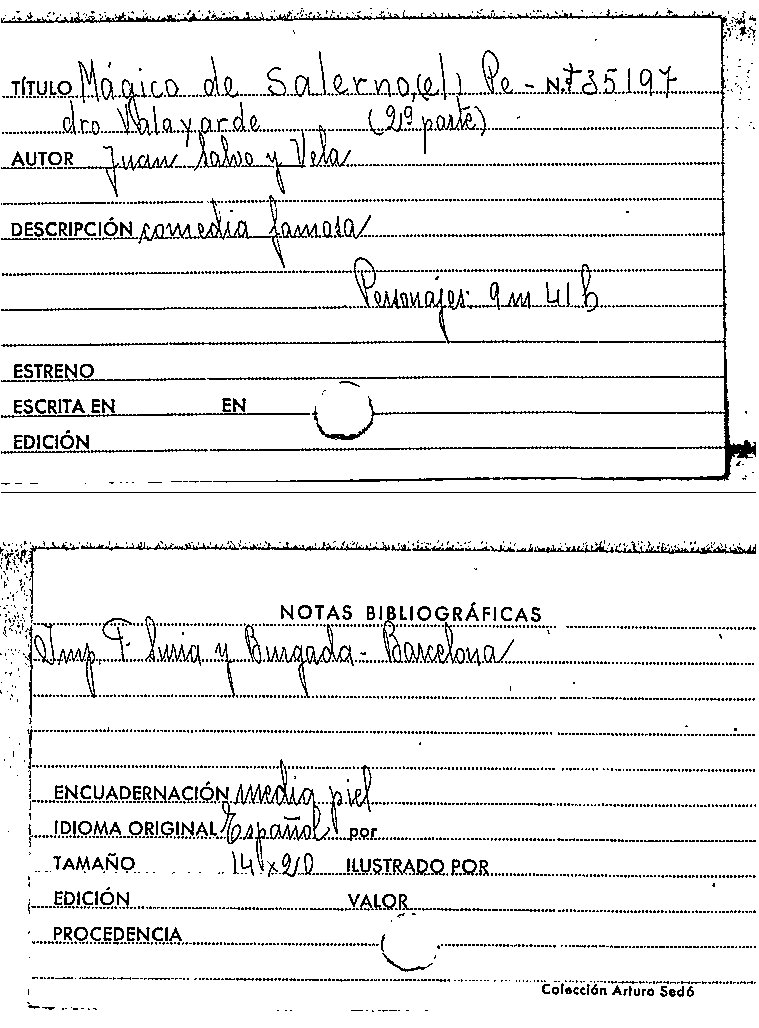 TÍTULO Mágico de Salerno, (el); Pe- N.º 735197
dro Valayarde (2ª parte)
AUTOR Juan Salvo y Vela
DESCRIPCIÓN comedia famosa
Personajes: 9 m 41 h
ESTRENO
ESCRITA EN EN
EDICIÓN
NOTAS BIBLIOGRÁFICAS
Imp. F. Suria y Burgada - Barcelona
ENCUADERNACIÓN media piel
IDIOMA ORIGINAL Español por
TAMAÑO 14 x 20 ILUSTRADO POR
EDICIÓN VALOR
PROCEDENCIA
Colección Arturo Sedó